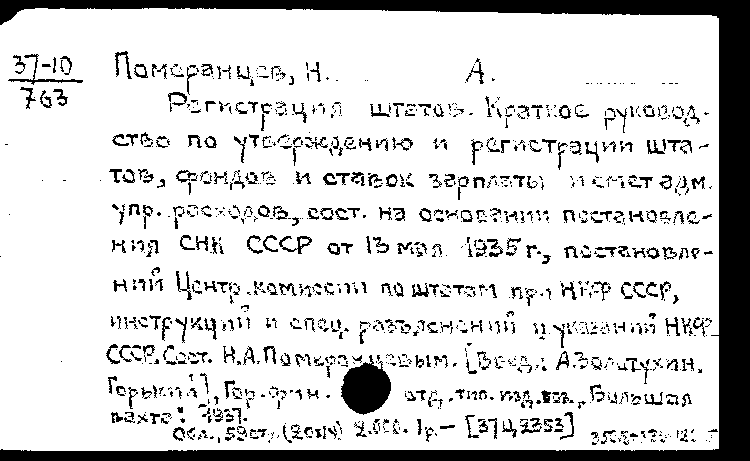 37-10
763
Померанцев, Н. А.
Регистрация штатов. Краткое руковод-
ство по утверждению и регистрации шта-
тов, фондов и ставок зарплаты и смет адм.
упр. расходов, сост. на основании постановле-
ния СНК СССР от 13 мая 1935 г., постановле-
ний Центр. комиссии по штатам при НКФ СССР,
инструкций и спец. разъяснений и указаний НКФ
СССР. Сост. Н.А. Померанцевым. [Введ.: А. Золотухин.
Горький], Гор. фин. отд., тип. изд-ва „Большая
вахта“ 1937.
Обл., 59 стр. (20х14) 2.000. 1 р. — [37Ц2353]